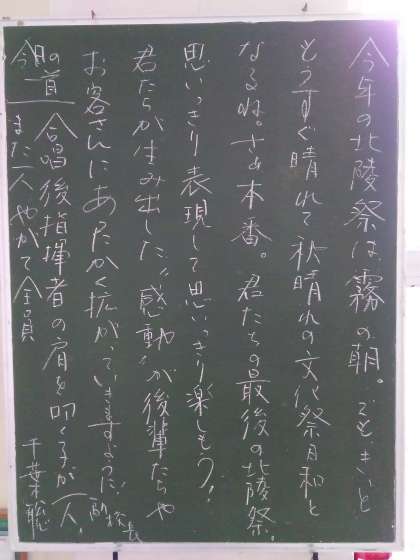 今年の北陵祭は、霧の朝。でも、きっと
もうすぐ晴れて秋晴れの文化祭日和と
なるね。さあ本番。君たちの最後の北陵祭。
思いっきり表現して思いっきり楽しもう!
君たちが生み出した"感動"が後輩たちや
お客さんにあたたかく拡がっていきますように。
今日の一首
合唱後指揮者の肩を叩く子が一人、
また一人やがて全員
千葉聡